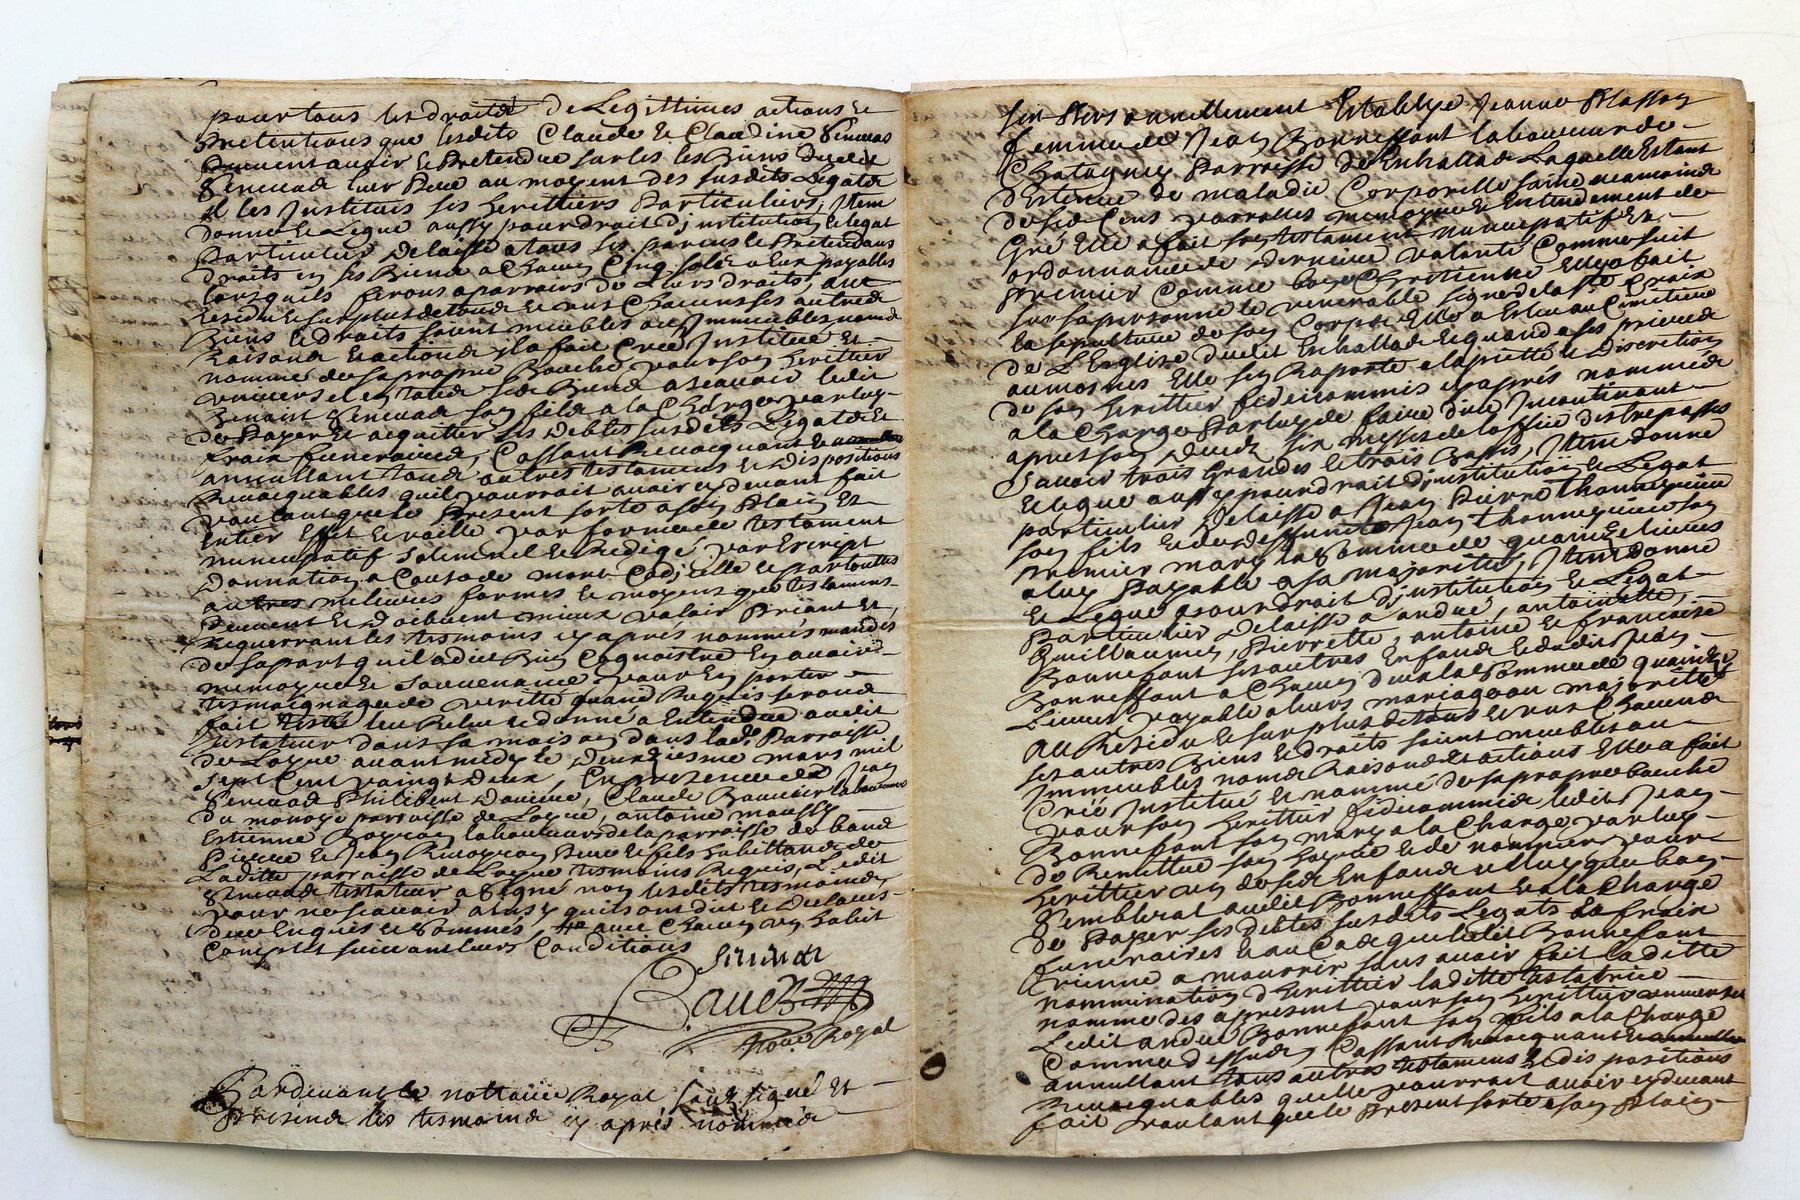 pour tous les droits de Legittimes actions et
Pretentions que lesdits Claude et Claudine
peuvent avoir et Pretendre sur les Biens dudit
leur Pere au moyent des susdits Legats
il les Institues ses herittiers Particuliers, Item
donne et Legue aussy pour droit d'institution et legat
Particulier delaisse a tous ses parens et Pretendans
droits en ses Biens a Chacun Cinq sols a Eux payables
lors quils feront aparroirs de Leurs droits, au
residu et surplus de tous et uns Chacuns ses autres
Biens et droits soient meubles ou Immeubles noms
Raisons et actions il a fait Cree Institué et
nommé de sa propre Bouche pour son herittier
universel en tous ses Biens a scavoir ledit
Benoist son fils a la Charge par luy
de Payer et acquitter ses debtes susdits Legats et
fraix funeraires, Cassant Revocquant et
annullant tous autres testamens et dispositions
Revocquables quil pourrait avoir cy devant fait
voulant que le Present sorte a son Plain et
Entier Effet et vaille par forme de testament
nuncupatif solemnel et Redigé par Escript
donnation a Cause de mort Codicille et par toutes
autres meilieures formes et moyens que testamens
peuvent et doibvent mieux valoir Priant et
Requerrant les tesmoins cy après nommés mandés
de sa part quil a dict Bien Cognoistre En avoir
memoyre et souvenance pour En porter
tesmoignage de verité quand Requis seront
fait Leu Releu et donné a Entendre audit
testateur dans sa maison dans lad. Parroisse
de Loyre avant midy le deuxiesme mars mil
sept Cent vaingt deux, En presence de Jean
Philibert Claude laboureur
du parroisse de Loyre, antoine
Estienne laboureurs de la parroisse de
Pierre et Jean Pere et fils habittans de
Laditte parroisse de Loyre tesmoins Requis, Ledit
testateur a signé non lesdits tesmoins
pour ne scavoir ainsy quils ont dict et declaré
deue Enquis et sommés, avec Chacun un habit
Complet suivant leurs Conditions
notre Royal
Pardevant le nottaire Royal soubsigné et
presens les tesmoins cy après nommés
fut Personnellement Establye Jeanne
femme de Jean Bonnefont laboureur de
Parroisse de laquelle Estant
détenue de maladie Corporelle saine neamoins
de ses sens parolles memoyre et Entendement de
Gré Elle a fait son testament nuncupatif et
ordonnance de derniere volonté Comme suit
Premier Comme bonne Chretienne Elle a fait
sur sa personne le venerable signe de la Ste Croix
la sepulture de son Corps Elle a Esleu au Cimitiere
de L'Esglise dudit Et quand a ses prieres
aumosnes Elle s'en Raporte a la pietté et discretion
de son herittier fideicommis cy après nommé
a la Charge Par luy de faire dire Incontinant
après son deces six messes de loffice des trepassés
scavoir trois grandes et trois Basses, Item donne
et legue aussy pour droit d'institution et Legat
particulier delaisse a Jean Pierre
son fils et de deffunt Jean son
premier mary la somme de quainze livres
a luy Payable a sa majorité, Item donne
et Legue pour droit d'institution et Legat
Particulier delaisse a andré, antoinette,
Guillaume, Pierrette, antoine et francoise
Bonnefont ses autres Enfans et dudit Jean
Bonnefont a Chacun d'eux la somme de quainze
Livres payable a leurs mariage ou majorité
au Residu et surplus de tous et uns Chacuns
ses autres Biens et droits soient meubles ou
Immeubles noms Raisons et actions Elle a fait
Créé Institué et nommé de sa propre bouche
pour son herittier fideicommis ledit Jean
Bonnefont son mary a la Charge par luy
de Remettre son hoyrie et de nommer pour
herittier un de ses Enfans celluy que bon
semblerat audit Bonnefont Et a la Charge
de Payer ses debtes susdits Legats Et fraix
funeraires Et au Cas que ledit Bonnefont
vienne a mourir sans avoir fait laditte
nommination d'herittier laditte testatrice
nomme des a present pour son herittier universel
Ledit andré Bonnefont son fils a la Charge
Comme dessus, Cassant Revocquant et
annullant tous autres testamens et dispositions
Revocquables quelle pourrait avoir cy devant
fait voulant que le Present sorte a son Plain